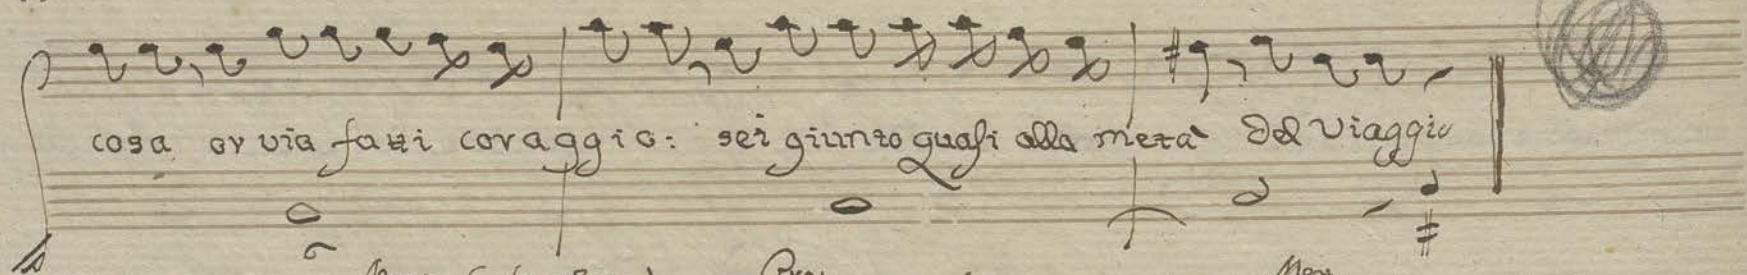 cosa or via fatti coraggio: sei giunto quasi alla metà del viaggio